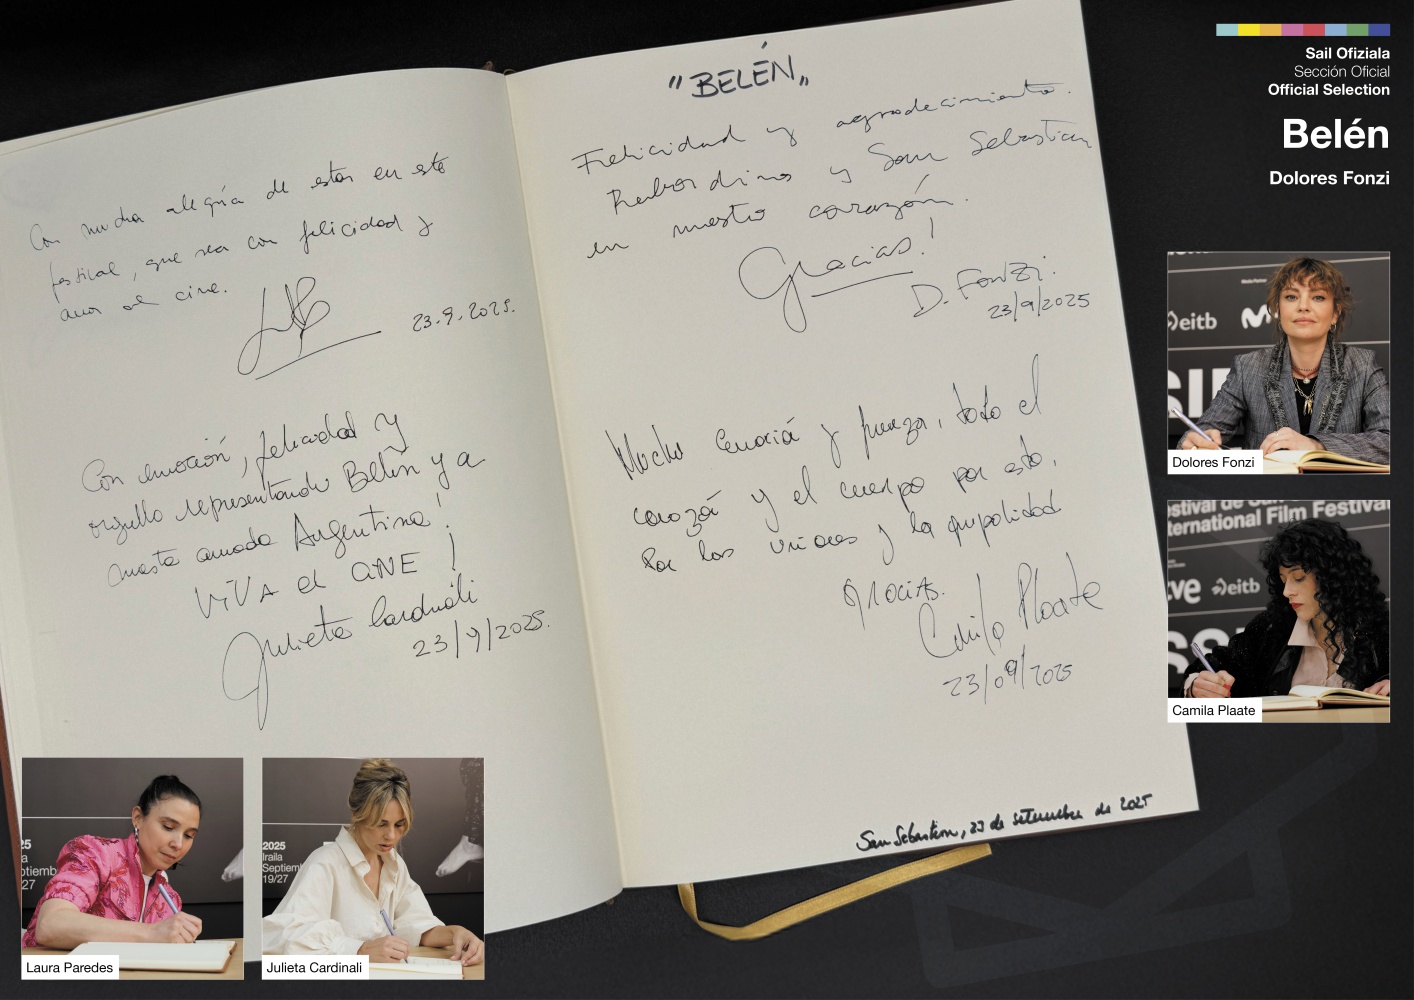 Con mucha alegría de estar en este
festival, que sea con felicidad y
amor al cine.
23.9.2025.
Con emoción, felicidad y
orgullo representando Belén y a
nuesta amada Argentina!
VIVA el CINE!
Julieta Cardinali
23/9/2025.
"BELÉN"
Felicidad y agradecimiento.
Rebordinos y San Sebastian
en nuestro corazón.
Gracias!
D. FONZI.
23/9/2025
Mucha emoció y fuerza, todo el
corazó y el cuerpo por esto.
Por las y la grupalidad
Gracias.
Camila Plaate
23/09/2025
San Sebastián, 23 de setiembre de 2025
Sail Ofiziala
Sección Oficial
Official Selection
Belén
Dolores Fonzi
eitb
Dolores Fonzi
stival de San
ternational Film Festival
ve eitb
SS
Camila Plaate
25
la
ptiemb
/27
Laura Paredes
2025
Iraila
Septiem
19/27
Julieta Cardinali